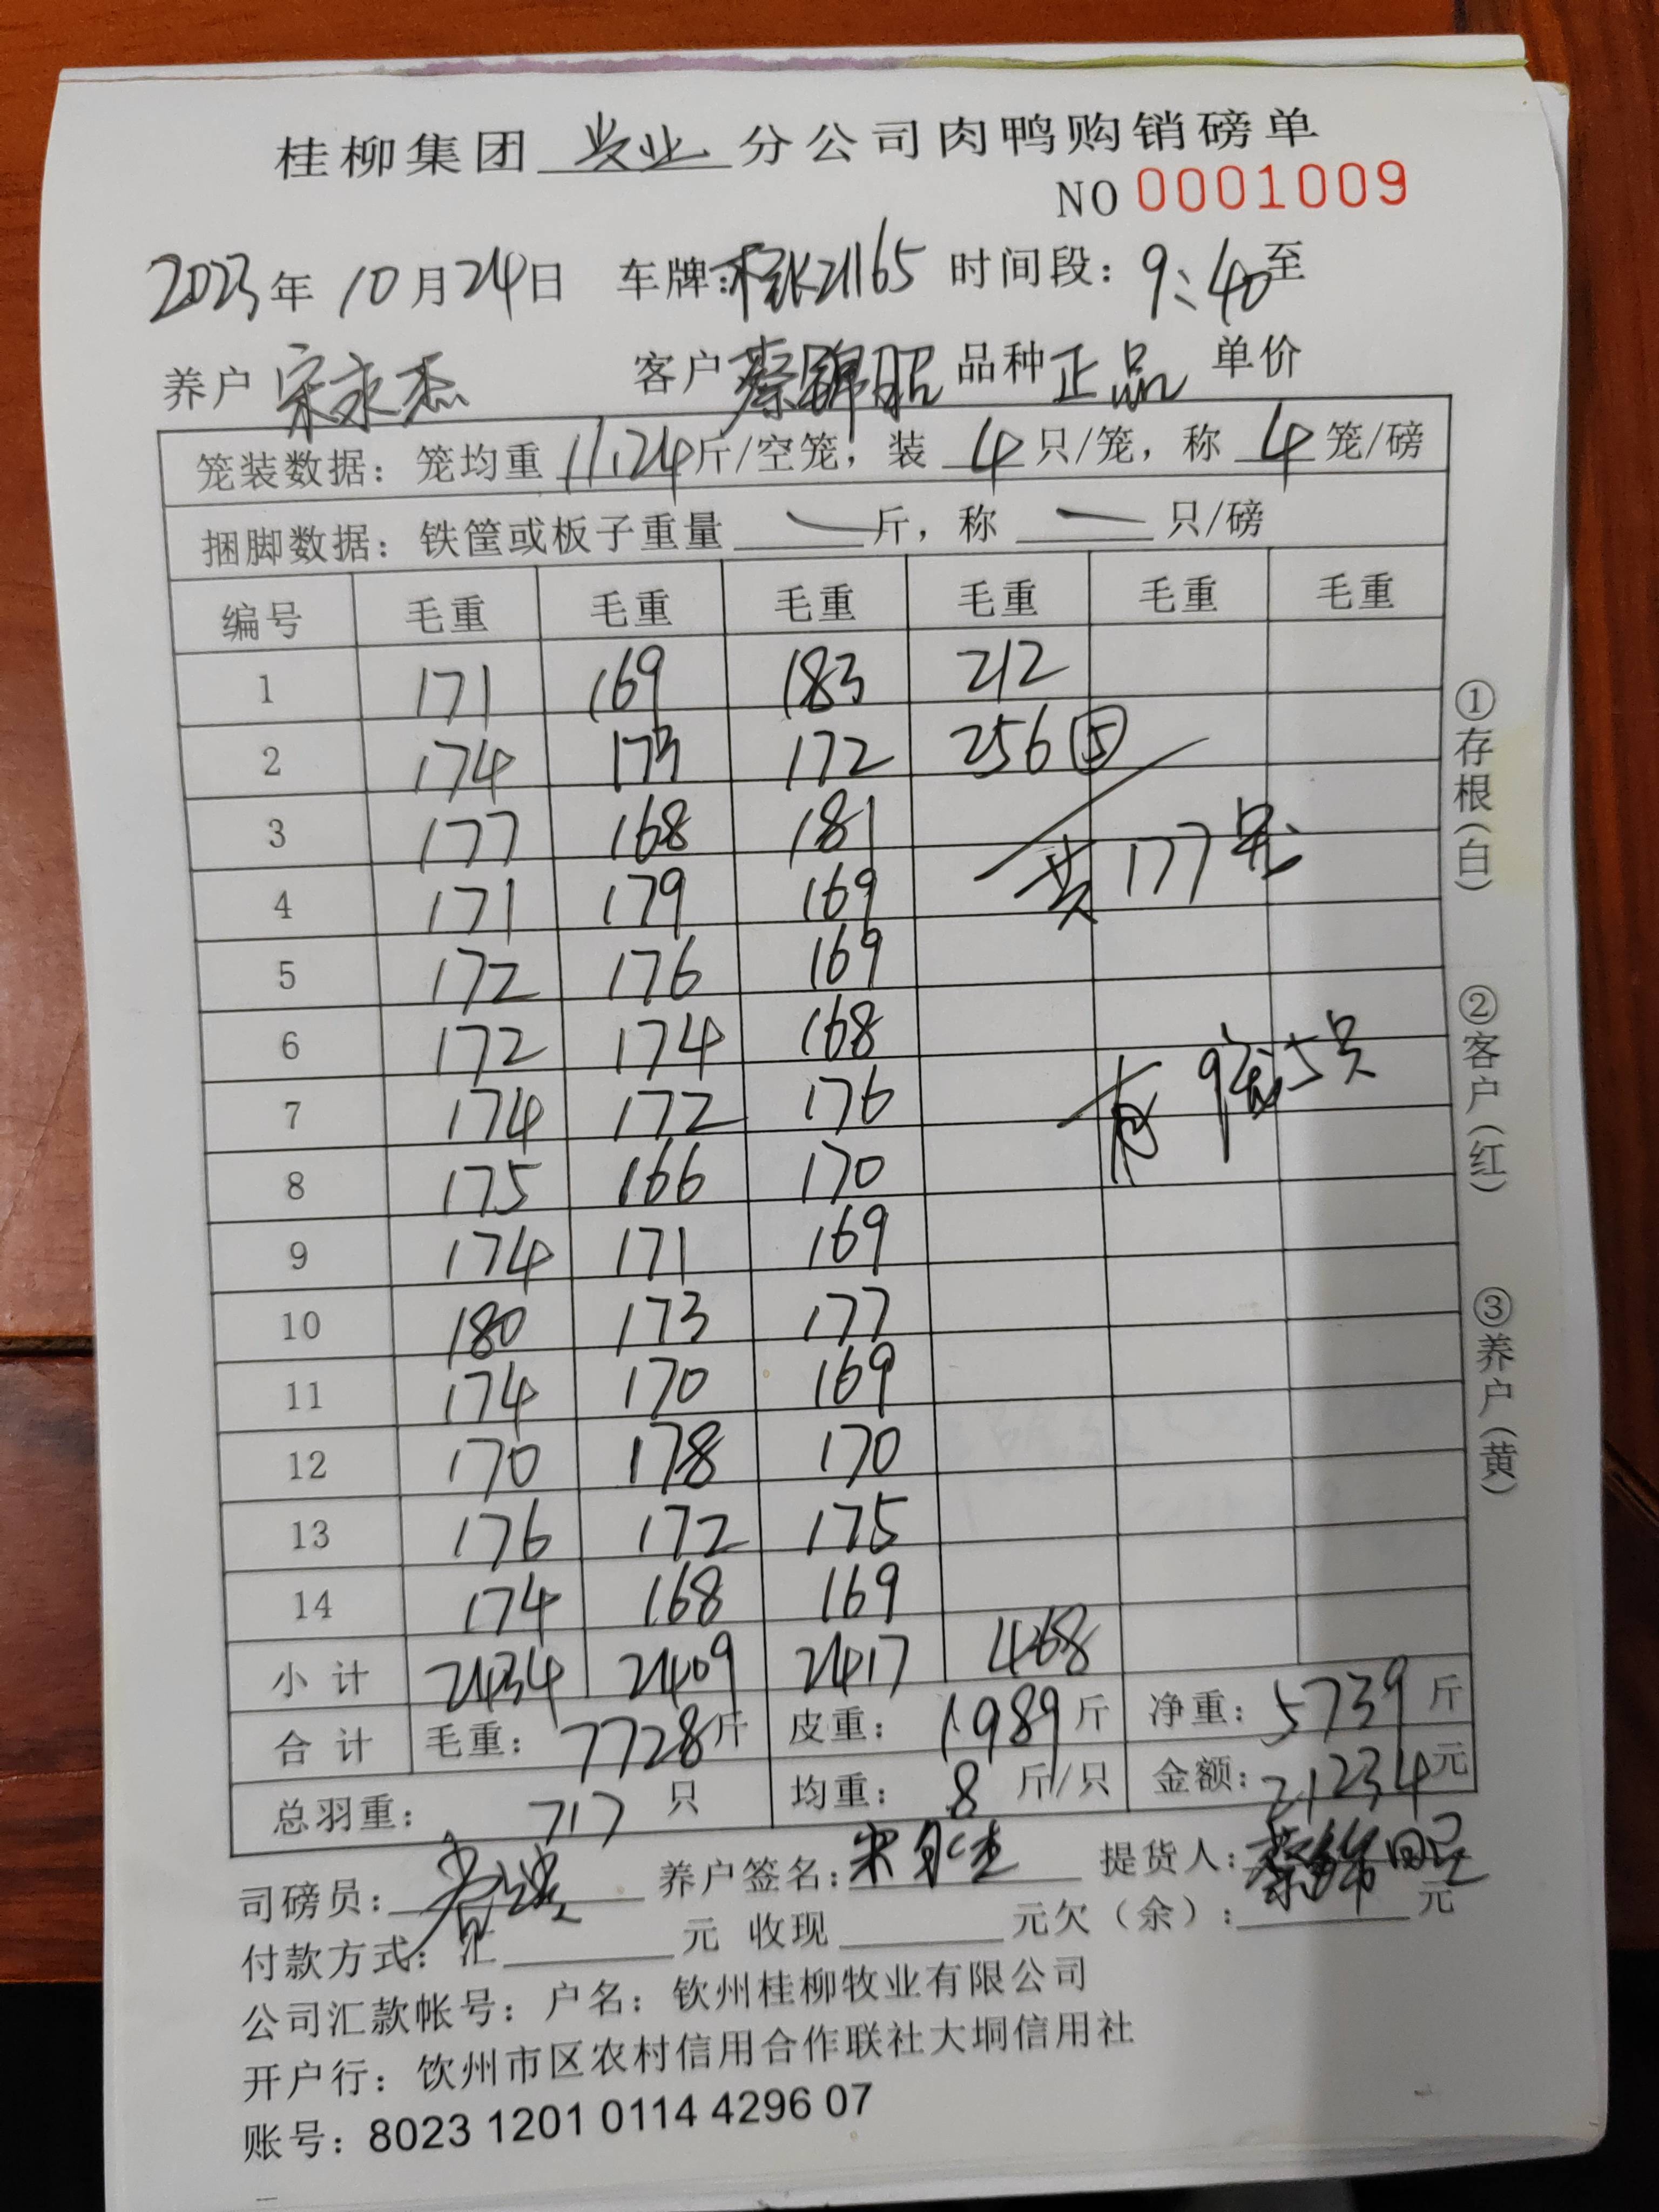 桂柳集团 兴业 分公司肉鸭购销磅单
NO 0001009
2023年10月24日 车牌:桂K21165 时间段:9:40至
养户 宋永杰 客户 蔡锦昭 品种 正品 单价
笼装数据:笼均重 11.24 斤/空笼,装 4 只/笼,称 4 笼/磅
捆脚数据:铁筐或板子重量 — 斤,称 — 只/磅
编号 毛重 毛重 毛重 毛重 毛重 毛重
1 171 169 183 212
2 174 173 172 256 ⑤
3 177 168 181
共177笼
4 171 179 169
5 172 176 169
6 172 174 168
有9笼5只
7 174 172 176
8 175 166 170
9 174 171 169
10 180 173 177
11 174 170 169
12 170 178 170
13 176 172 175
14 174 168 169
小计 2434 2409 2417 468
合计 毛重:7728斤 皮重:1989斤 净重:5739斤
总羽重:717只 均重:8斤/只 金额:21234元
司磅员: 养户签名: 提货人:蔡锦昭
付款方式:汇 元 收现 元欠(余): 元
公司汇款帐号:户名:钦州桂柳牧业有限公司
开户行:钦州市区农村信用合作联社大垌信用社
账号:8023 1201 0114 4296 07
①存根(白)
②客户(红)
③养户(黄)